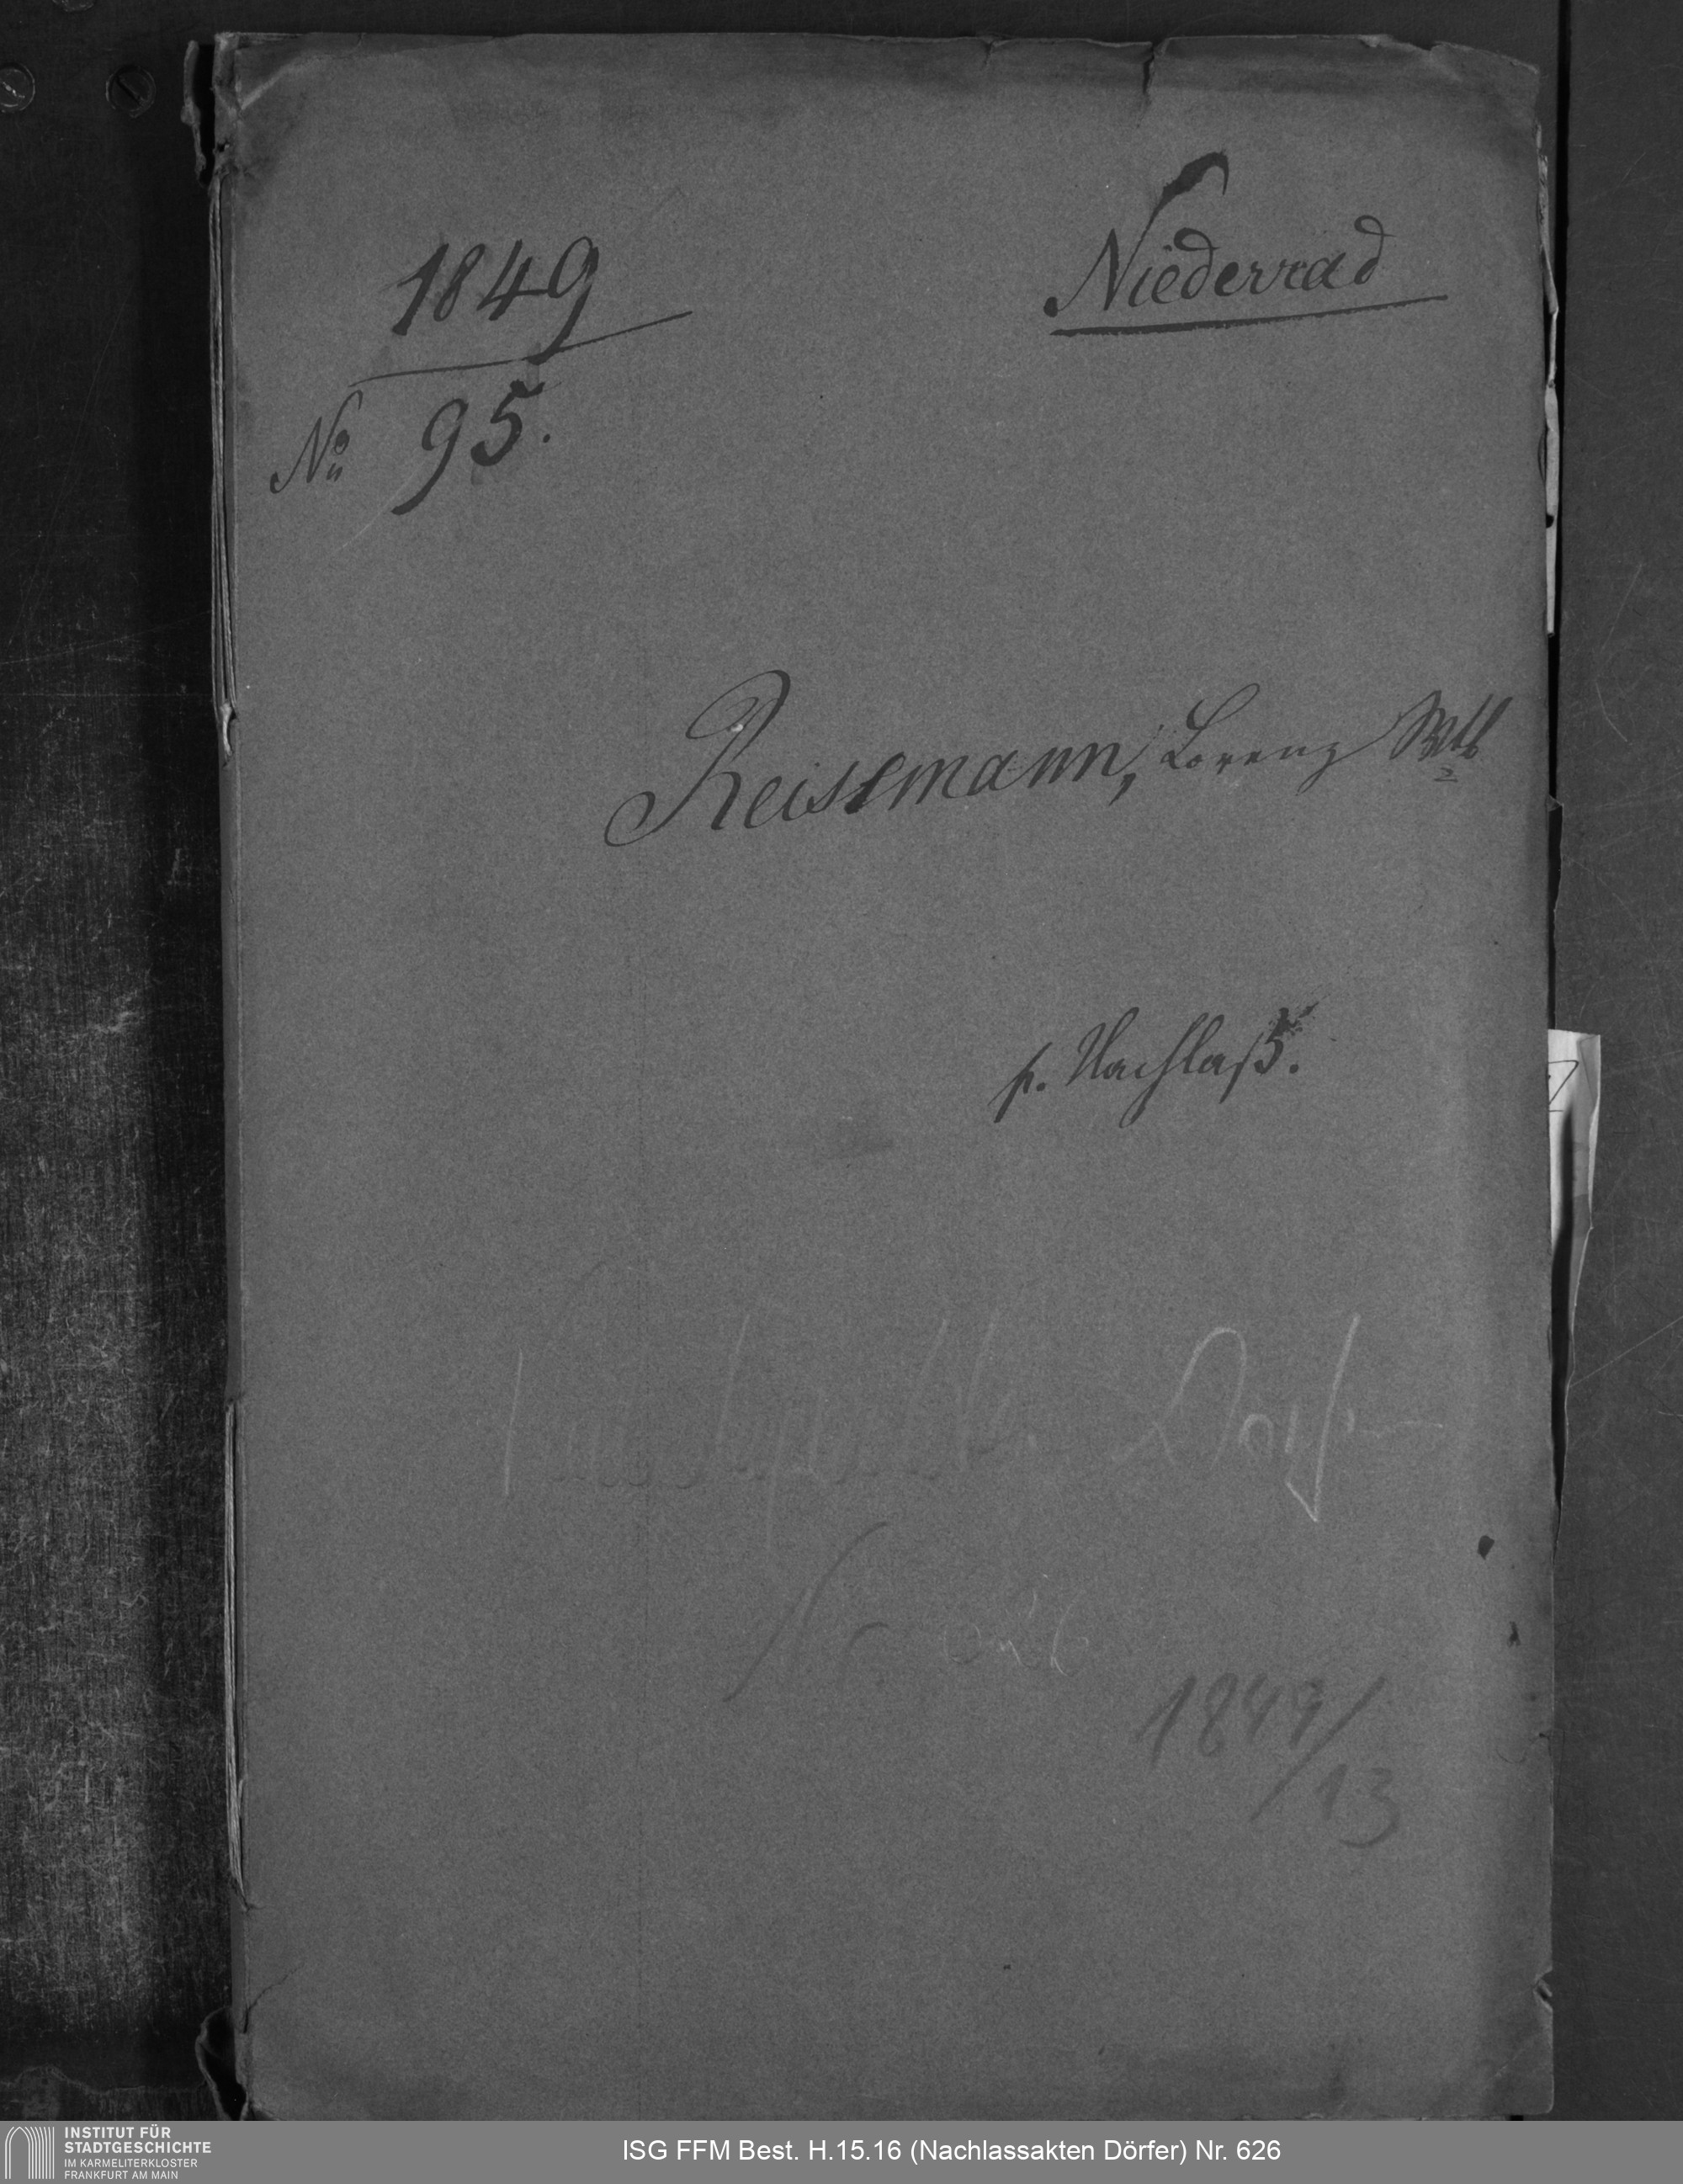 1849
Niederrad
No 95.
Reissmann, Lorenz
p. Nachlaß.
Dörfer
Nr 626
1849/13
INSTITUT FÜR
STADTGESCHICHTE
IM KARMELITERKLOSTER
FRANKFURT AM MAIN
ISG FFM Best. H.15.16 (Nachlassakten Dörfer) Nr. 626